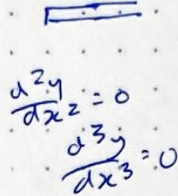 d²y/dx² = 0
d³y/dx³ = 0